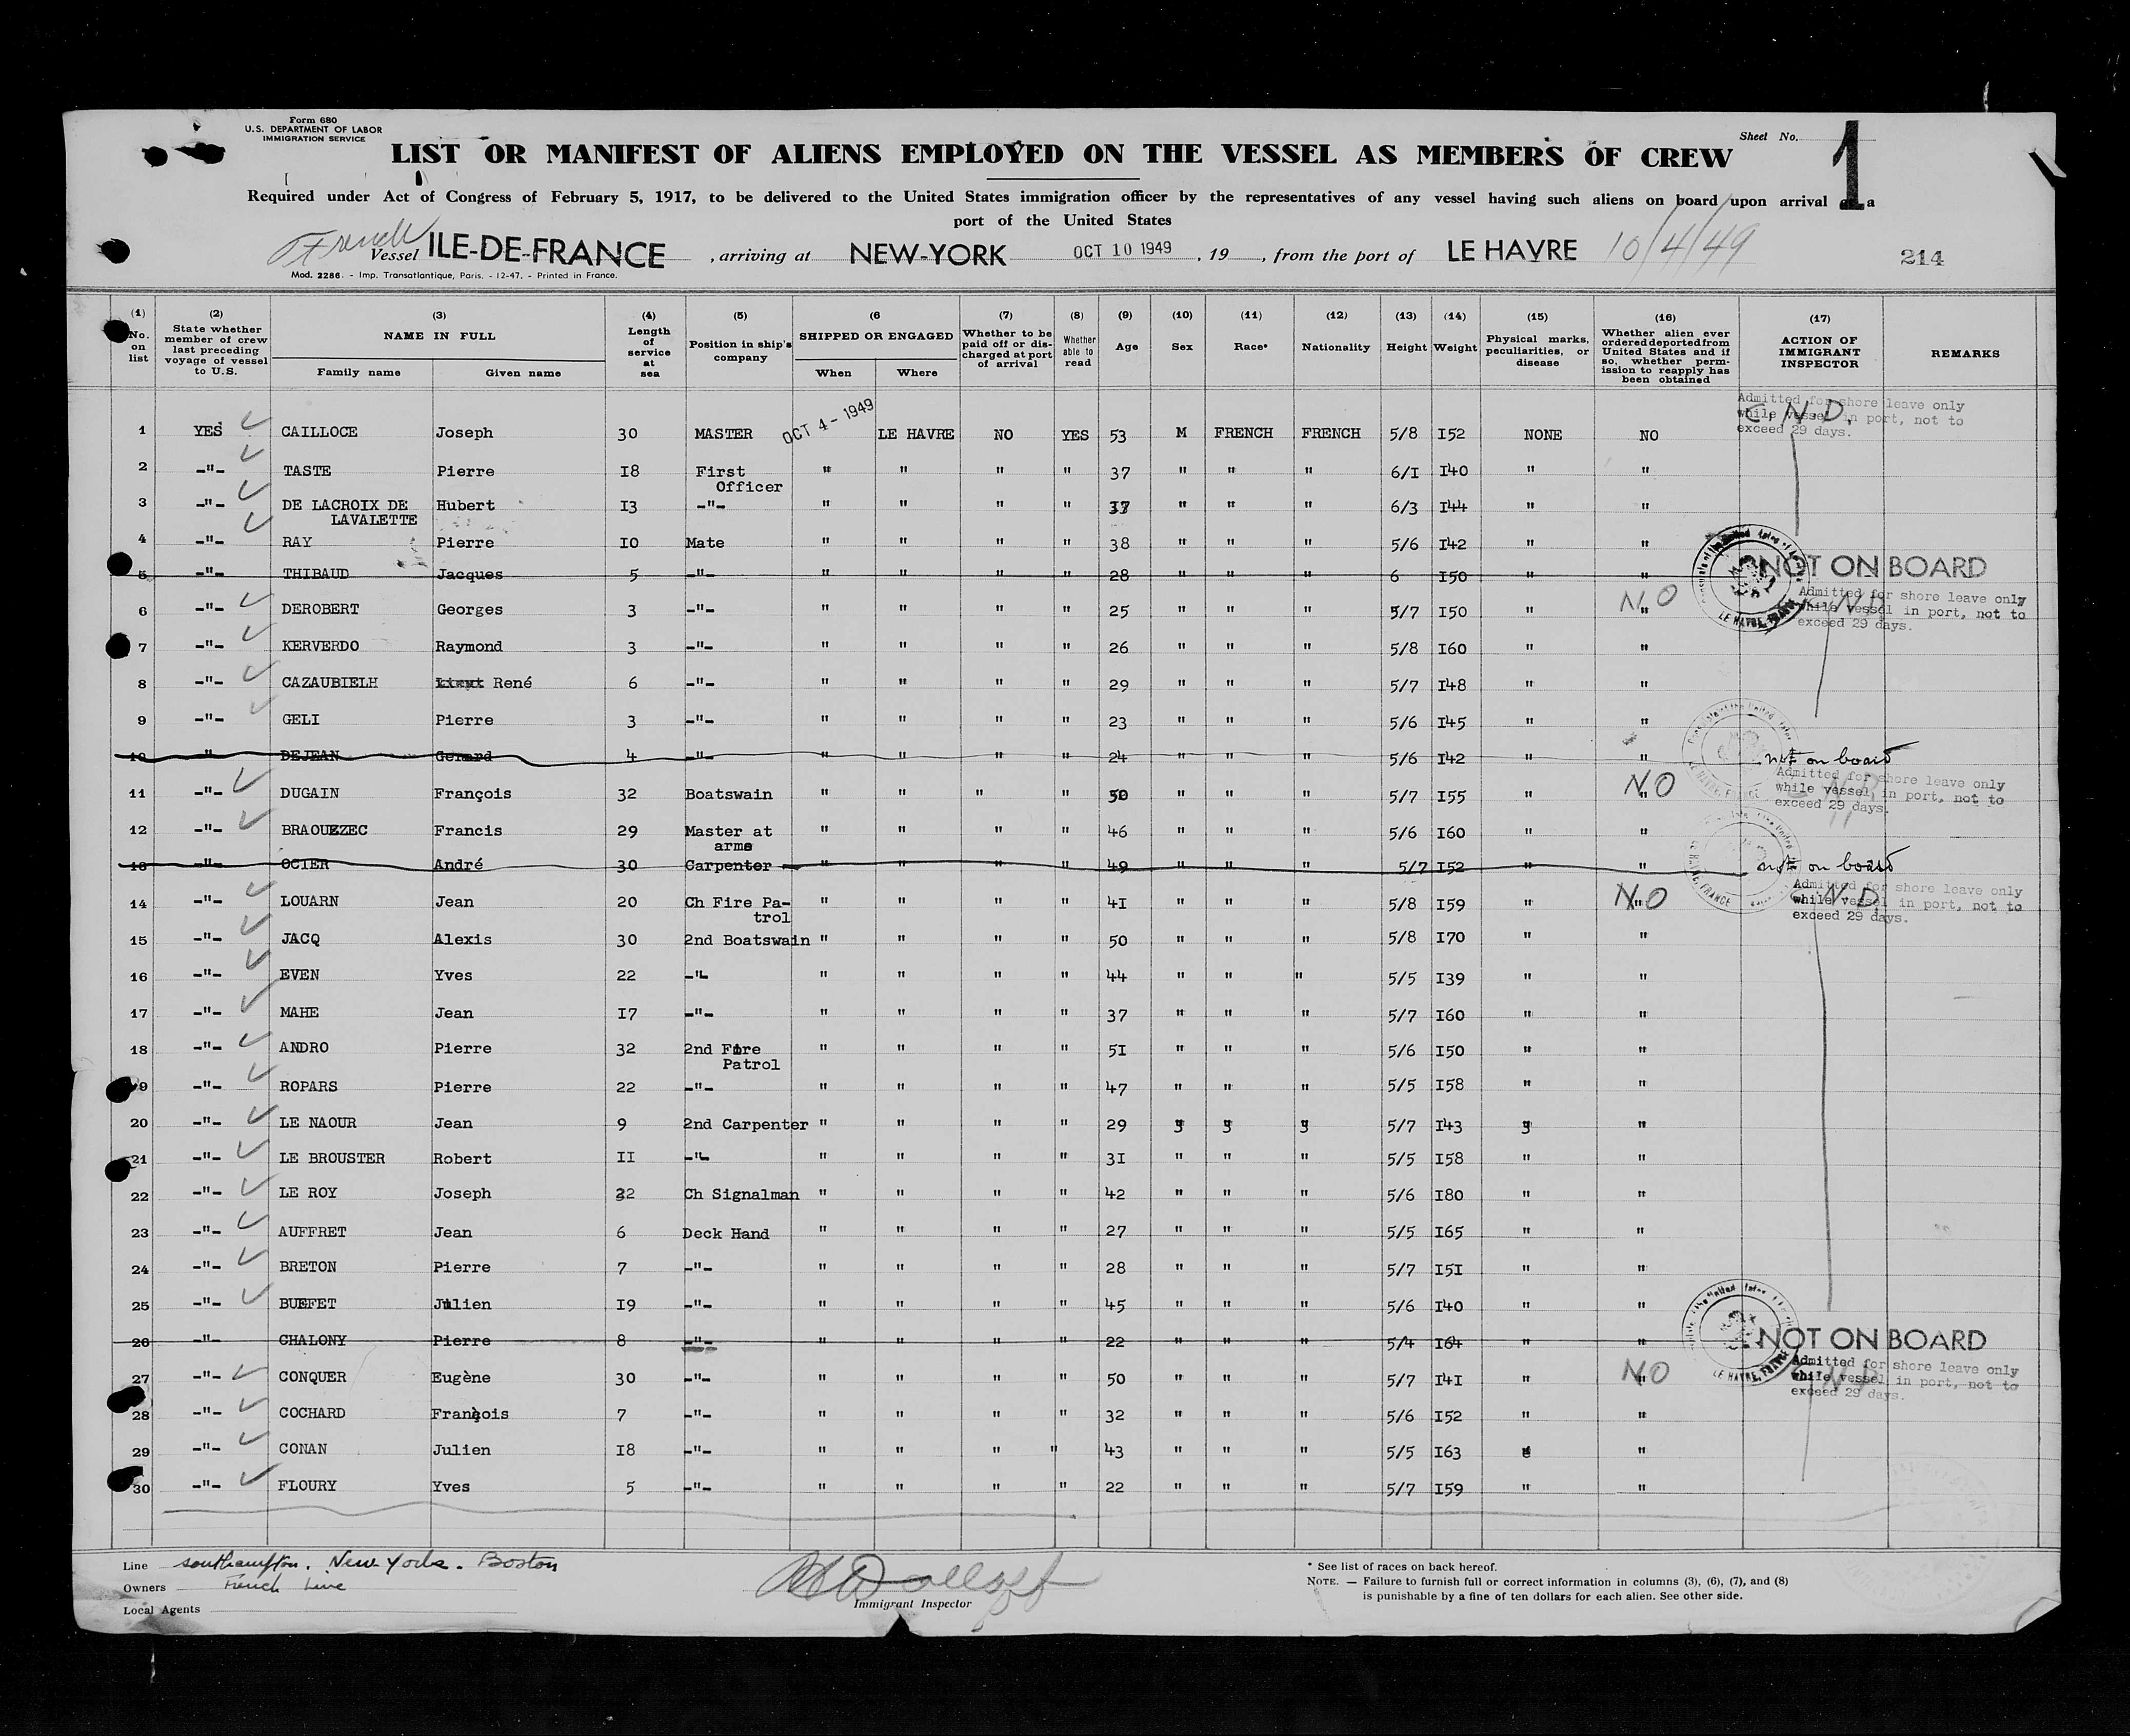 Form 680
U.S. DEPARTMENT OF LABOR
IMMIGRATION SERVICE
Sheet No. 1
LIST OR MANIFEST OF ALIENS EMPLOYED ON THE VESSEL AS MEMBERS OF CREW
Required under Act of Congress of February 5, 1917, to be delivered to the United States immigration officer by the representatives of any vessel having such aliens on board upon arrival at a
port of the United States
French
Vessel ILE-DE-FRANCE , arriving at NEW-YORK OCT 10 1949 , 19 , from the port of LE HAVRE 10/4/49 214
Mod. 2286. - Imp. Transatlantique, Paris. - 12-47. - Printed in France.
(1) No. on list (2) State whether member of crew last preceding voyage of vessel to U.S. (3) NAME IN FULL Family name Given name (4) Length of service at sea (5) Position in ship's company (6 SHIPPED OR ENGAGED When Where (7) Whether to be paid off or discharged at port of arrival (8) Whether able to read (9) Age (10) Sex (11) Race* (12) Nationality (13) Height (14) Weight (15) Physical marks, peculiarities, or disease (16) Whether alien ever ordered deported from United States and if so, whether permission to reapply has been obtained (17) ACTION OF IMMIGRANT INSPECTOR REMARKS
1 YES CAILLOCE Joseph 30 MASTER OCT 4 - 1949 LE HAVRE NO YES 53 M FRENCH FRENCH 5/8 I52 NONE NO Admitted for shore leave only while vessel in port, not to exceed 29 days.
2 -"- TASTE Pierre I8 First Officer " " " " 37 " " " 6/I I40 " "
3 -"- DE LACROIX DE LAVALETTE Hubert I3 -"- " " " " 37 " " " 6/3 I44 " "
4 -"- RAY Pierre IO Mate " " " " 38 " " " 5/6 I42 " "
5 -"- THIBAUD Jacques 5 -"- " " " " 28 " " " 6 I50 " " NOT ON BOARD
6 -"- DEROBERT Georges 3 -"- " " " " 25 " " " 5/7 I50 " " NO Admitted for shore leave only while vessel in port, not to exceed 29 days.
7 -"- KERVERDO Raymond 3 -"- " " " " 26 " " " 5/8 I60 " "
8 -"- CAZAUBIELH René 6 -"- " " " " 29 " " " 5/7 I48 " "
9 -"- GELI Pierre 3 -"- " " " " 23 " " " 5/6 I45 " "
10 " DEJEAN Gerard 4 -"- " " " " 24 " " " 5/6 I42 " " not on board
11 -"- DUGAIN François 32 Boatswain " " " " 50 " " " 5/7 I55 " " NO Admitted for shore leave only while vessel in port, not to exceed 29 days.
12 -"- BRAOUEZEC Francis 29 Master at arms " " " " 46 " " " 5/6 I60 " "
13 -"- OCIER André 30 Carpenter " " " " 49 " " " 5/7 I52 " " not on board
14 -"- LOUARN Jean 20 Ch Fire Patrol " " " " 4I " " " 5/8 I59 " " NO Admitted for shore leave only while vessel in port, not to exceed 29 days.
15 -"- JACQ Alexis 30 2nd Boatswain " " " " 50 " " " 5/8 I70 " "
16 -"- EVEN Yves 22 -"- " " " " 44 " " " 5/5 I39 " "
17 -"- MAHE Jean I7 -"- " " " " 37 " " " 5/7 I60 " "
18 -"- ANDRO Pierre 32 2nd Fire Patrol " " " " 5I " " " 5/6 I50 " "
19 -"- ROPARS Pierre 22 -"- " " " " 47 " " " 5/5 I58 " "
20 -"- LE NAOUR Jean 9 2nd Carpenter " " " " 29 " " " 5/7 I43 " "
21 -"- LE BROUSTER Robert II -"- " " " " 3I " " " 5/5 I58 " "
22 -"- LE ROY Joseph 22 Ch Signalman " " " " 42 " " " 5/6 I80 " "
23 -"- AUFFRET Jean 6 Deck Hand " " " " 27 " " " 5/5 I65 " "
24 -"- BRETON Pierre 7 -"- " " " " 28 " " " 5/7 I5I " "
25 -"- BUFFET Julien I9 -"- " " " " 45 " " " 5/6 I40 " "
26 -"- CHALONY Pierre 8 -"- " " " " 22 " " " 5/4 I64 " " NOT ON BOARD
27 -"- CONQUER Eugène 30 -"- " " " " 50 " " " 5/7 I4I " " NO Admitted for shore leave only while vessel in port, not to exceed 29 days.
28 -"- COCHARD François 7 -"- " " " " 32 " " " 5/6 I52 " "
29 -"- CONAN Julien I8 -"- " " " " 43 " " " 5/5 I63 "
30 -"- FLOURY Yves 5 -"- " " " " 22 " " " 5/7 I59 " "
Line southampton. New York. Boston
Owners French Line
Local Agents
Immigrant Inspector
* See list of races on back hereof.
NOTE. — Failure to furnish full or correct information in columns (3), (6), (7), and (8)
is punishable by a fine of ten dollars for each alien. See other side.